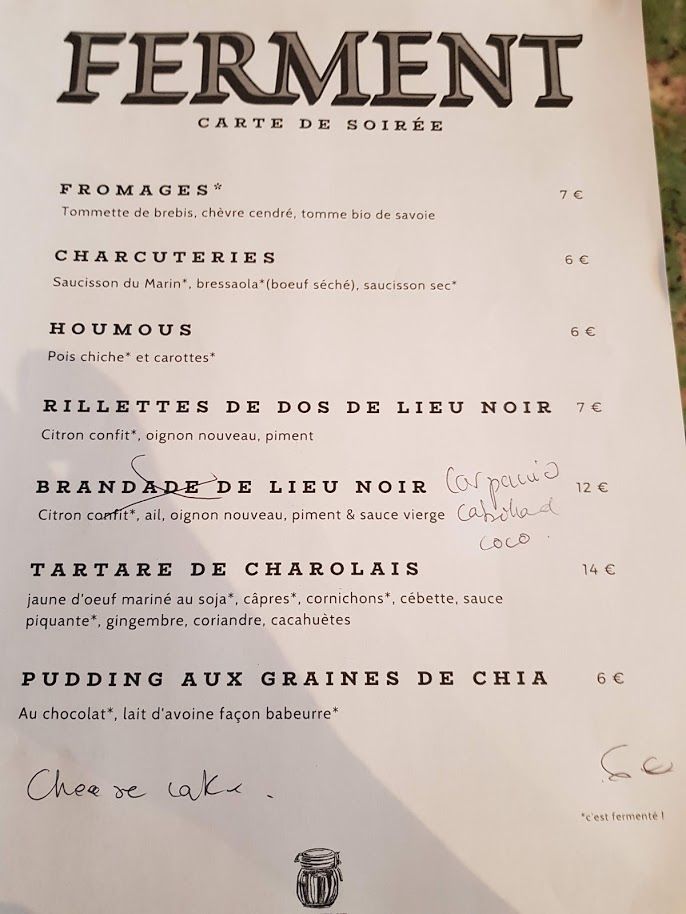 FERMENT
CARTE DE SOIRÉE
FROMAGES* 7 €
Tommette de brebis, chèvre cendré, tomme bio de savoie
CHARCUTERIES 6 €
Saucisson du Marin*, bressaola*(boeuf séché), saucisson sec*
HOUMOUS 6 €
Pois chiche* et carottes*
RILLETTES DE DOS DE LIEU NOIR 7 €
Citron confit*, oignon nouveau, piment
BRANDADE DE LIEU NOIR Carpaccio 12 €
Citron confit*, ail, oignon nouveau, piment & sauce vierge
coco.
TARTARE DE CHAROLAIS 14 €
jaune d'oeuf mariné au soja*, câpres*, cornichons*, cébette, sauce
piquante*, gingembre, coriandre, cacahuètes
PUDDING AUX GRAINES DE CHIA 6 €
Au chocolat*, lait d'avoine façon babeurre*
Cheese cake. 6€
*c'est fermenté !